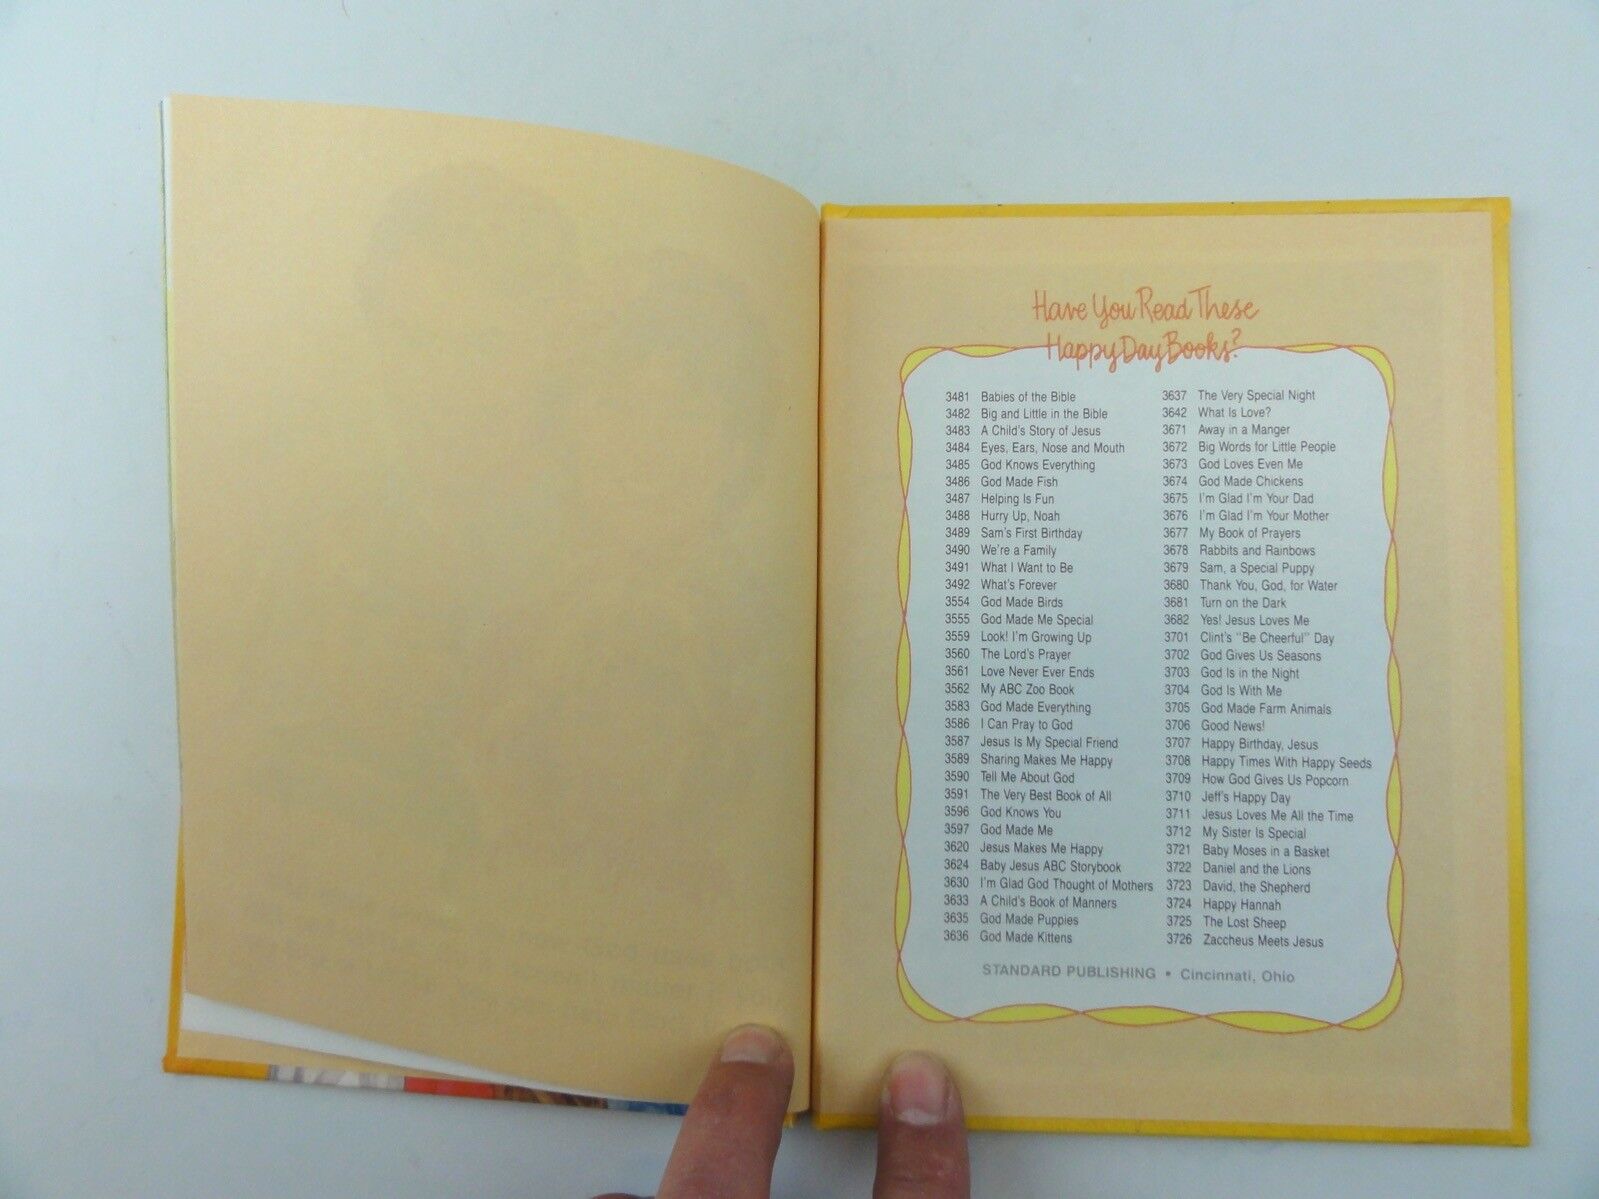 Have You Read These
Happy Day Books?
3481 Babies of the Bible
3482 Big and Little in the Bible
3483 A Child's Story of Jesus
3484 Eyes, Ears, Nose and Mouth
3485 God Knows Everything
3486 God Made Fish
3487 Helping Is Fun
3488 Hurry Up, Noah
3489 Sam's First Birthday
3490 We're a Family
3491 What I Want to Be
3492 What's Forever
3554 God Made Birds
3555 God Made Me Special
3559 Look! I'm Growing Up
3560 The Lord's Prayer
3561 Love Never Ever Ends
3562 My ABC Zoo Book
3583 God Made Everything
3586 I Can Pray to God
3587 Jesus Is My Special Friend
3589 Sharing Makes Me Happy
3590 Tell Me About God
3591 The Very Best Book of All
3596 God Knows You
3597 God Made Me
3620 Jesus Makes Me Happy
3624 Baby Jesus ABC Storybook
3630 I'm Glad God Thought of Mothers
3633 A Child's Book of Manners
3635 God Made Puppies
3636 God Made Kittens
3637 The Very Special Night
3642 What Is Love?
3671 Away in a Manger
3672 Big Words for Little People
3673 God Loves Even Me
3674 God Made Chickens
3675 I'm Glad I'm Your Dad
3676 I'm Glad I'm Your Mother
3677 My Book of Prayers
3678 Rabbits and Rainbows
3679 Sam, a Special Puppy
3680 Thank You, God, for Water
3681 Turn on the Dark
3682 Yes! Jesus Loves Me
3701 Clint's "Be Cheerful" Day
3702 God Gives Us Seasons
3703 God Is in the Night
3704 God Is With Me
3705 God Made Farm Animals
3706 Good News!
3707 Happy Birthday, Jesus
3708 Happy Times With Happy Seeds
3709 How God Gives Us Popcorn
3710 Jeff's Happy Day
3711 Jesus Loves Me All the Time
3712 My Sister Is Special
3721 Baby Moses in a Basket
3722 Daniel and the Lions
3723 David, the Shepherd
3724 Happy Hannah
3725 The Lost Sheep
3726 Zaccheus Meets Jesus
STANDARD PUBLISHING • Cincinnati, Ohio